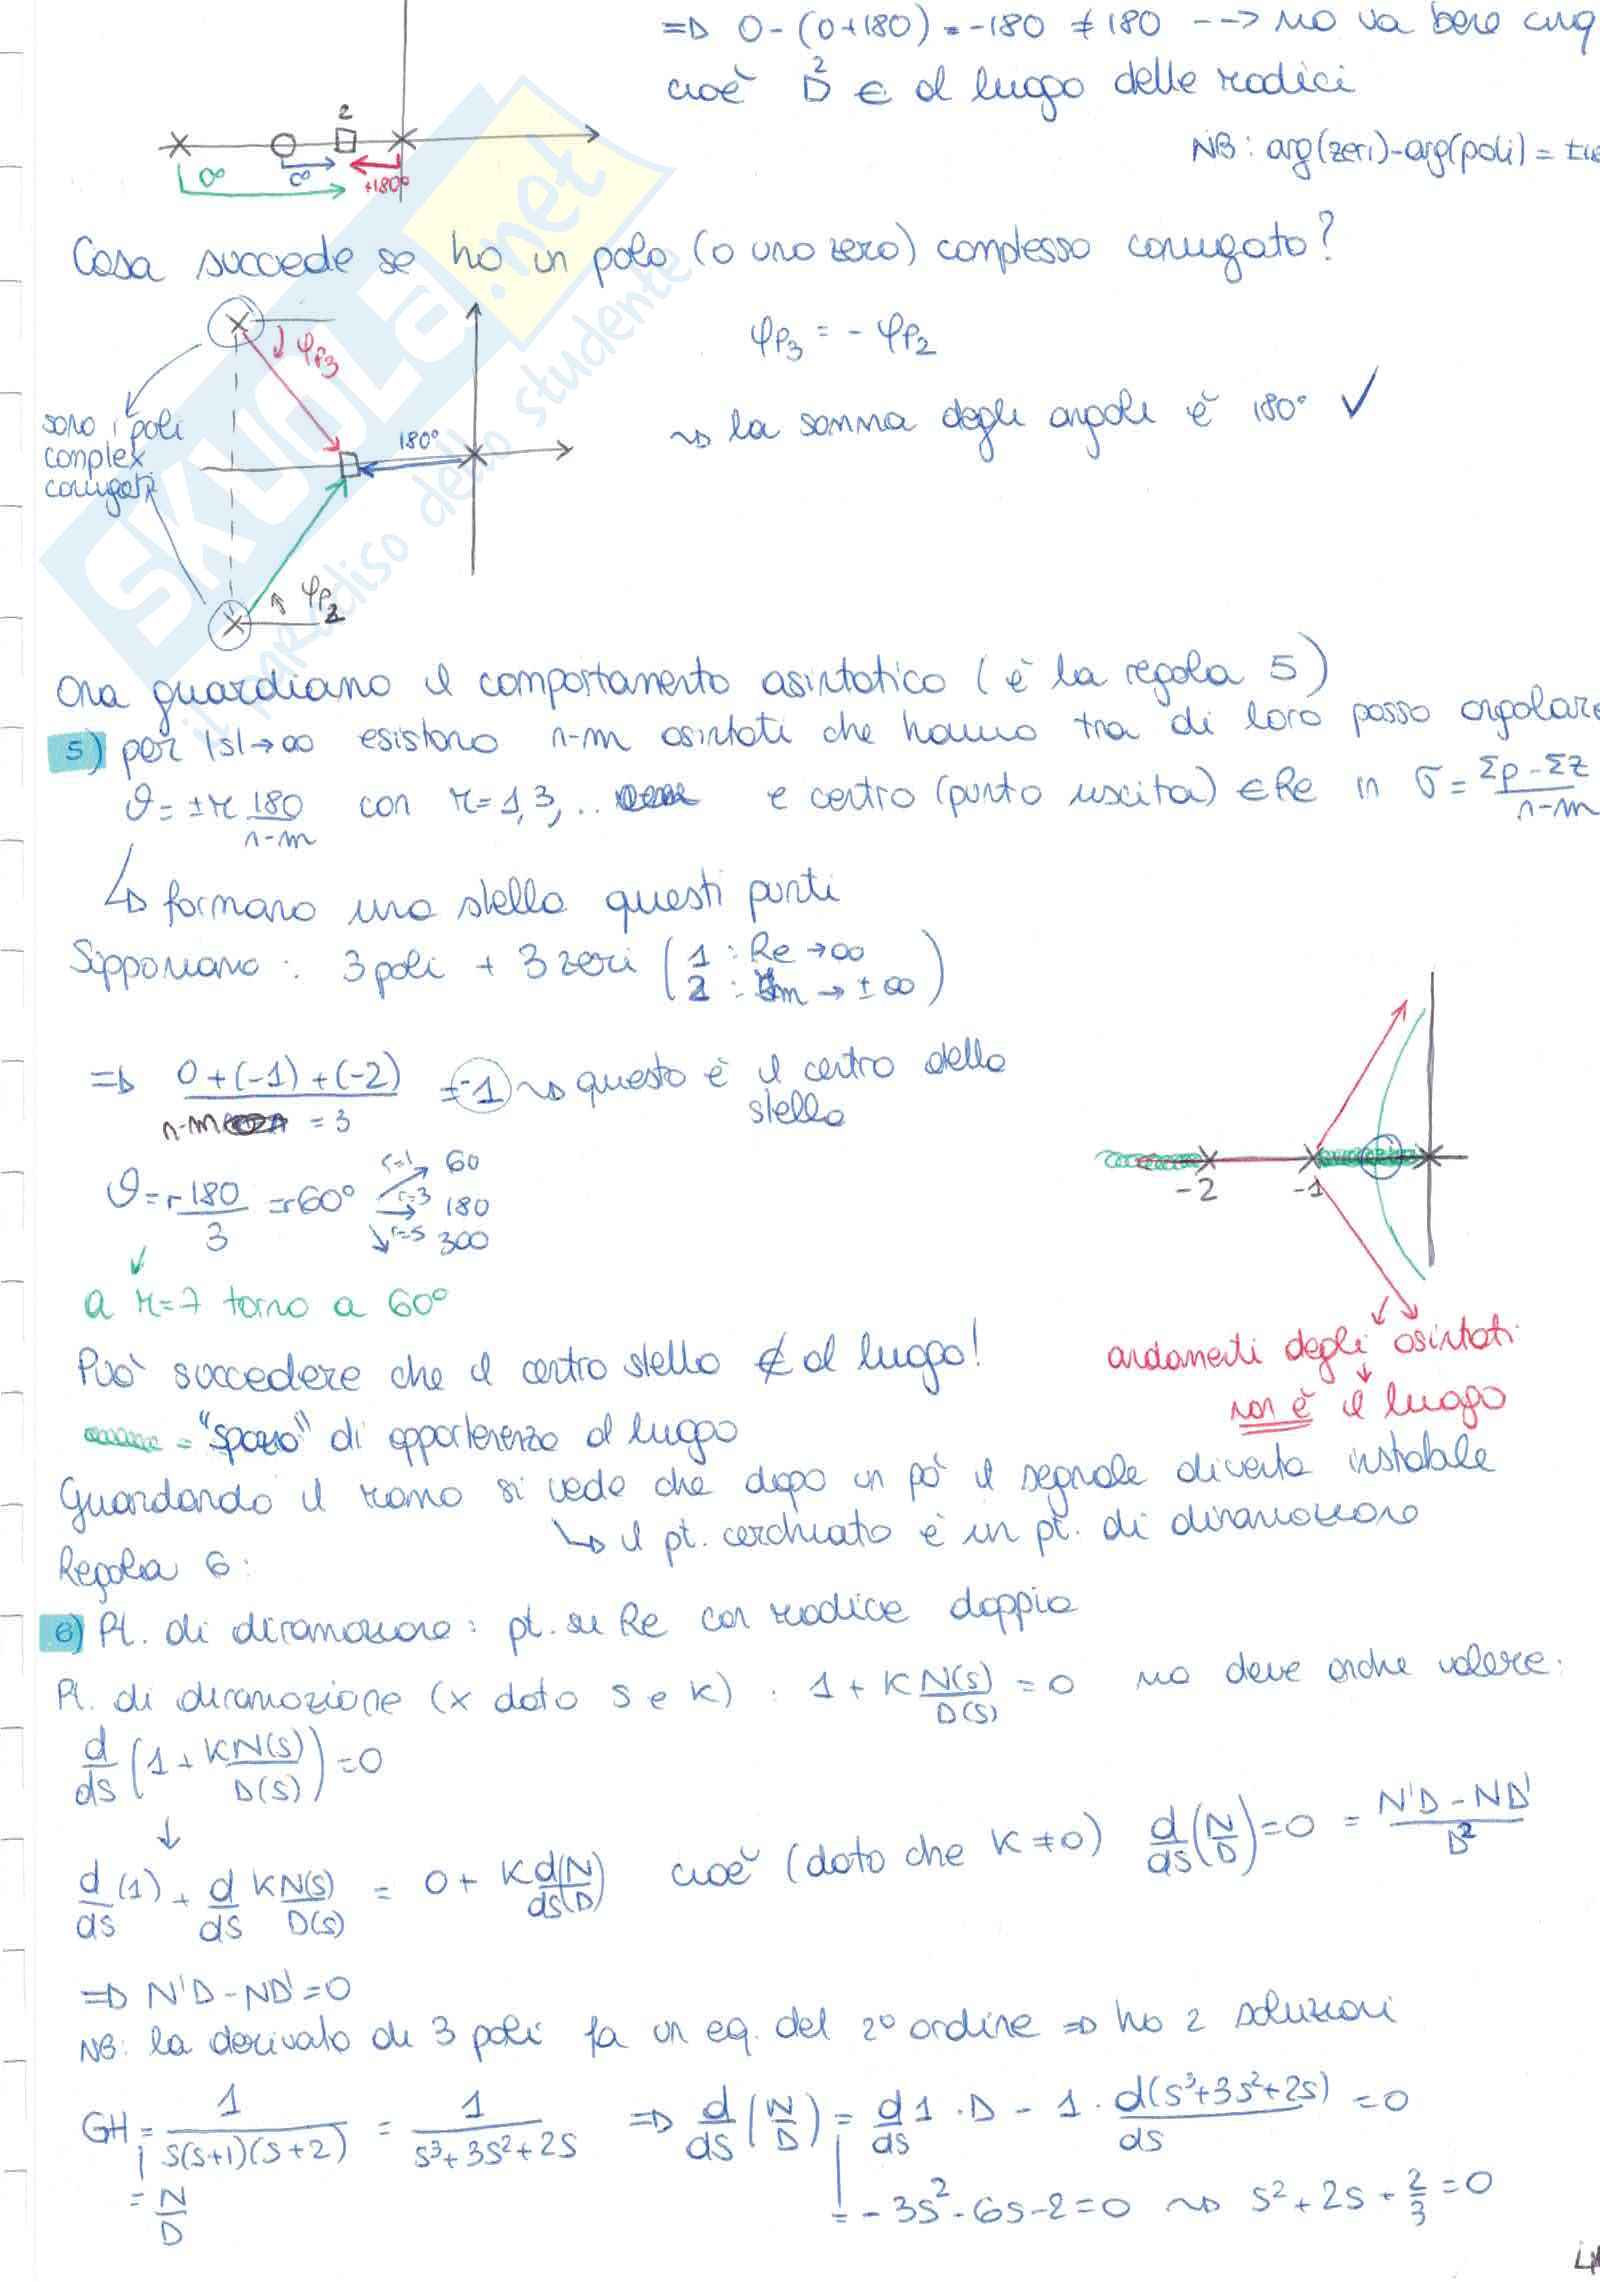 => 0-(0+180) = -180 ≠ 180 --> ma va bene
cioè □² ∈ al luogo delle radici
NB: arg(zeri)-arg(poli) =
2
0°
0°
+180°
Cosa succede se ho un polo (o uno zero) complesso coniugato?
φp3
φp3 = - φp2
sono i poli
complex
coniugati
180°
~> la somma degli angoli è 180° ✓
φp2
SKUOLA.net
il paradiso dello studente
Ora guardiamo il comportamento asintotico (è la regola 5)
5) per |s|→∞ esistono n-m asintoti che hanno tra di loro passo angolare
ϑ = ±r 180/(n-m) con r = 1,3,.. e centro (punto uscita) ∈ Re in σ = (Σp - Σz)/(n-m)
↳ formano una stella questi punti
Supponiamo: 3 poli + 3 zeri (1 : Re → ∞
2 : Im → ± ∞)
=> (0+(-1)+(-2))/(n-m = 3) = -1 ~> questo è il centro della
stella
ϑ = r 180/3 = r60° r=1 60
r=3 180
r=5 300
-2 -1
a r=7 torno a 60°
Può succedere che il centro stella ∉ al luogo!
andamenti degli asintoti
non è il luogo
= "spazio" di appartenenza al luogo
Guardando il ramo si vede che dopo un pò il segnale diventa instabile
↳ il pt. cerchiato è un pt. di diramazione
Regola 6:
6) Pt. di diramazione: pt. su Re con radice doppia
Pt. di diramazione (x dato s e K) : 1 + K N(s)/D(s) = 0 ma deve anche valere:
d/ds (1 + K N(s)/D(s)) = 0
↓
d/ds (1) + d/ds K N(s)/D(s) = 0 + K d/ds (N/D) cioè (dato che K ≠ 0) d/ds (N/D) = 0 = (N'D - ND')/D²
=> N'D - ND' = 0
NB: la derivata di 3 poli fa un eq. del 2° ordine => ho 2 soluzioni
GH = 1/(s(s+1)(s+2)) = 1/(s³+3s²+2s) => d/ds (N/D) = d/ds 1 · D - 1 · d(s³+3s²+2s)/ds = 0
= N/D
= -3s² - 6s - 2 = 0 ~> s² + 2s + 2/3 = 0